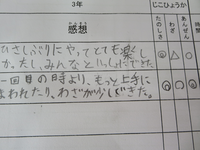 3年
じこひょうか
感想
かんそう
たのしさ
わざ
あんぜん
時間
ひさしぶりにやってとても楽し
かた。しみんなと
できた。
一回目の時より、もっと上手に
まわれたり、わざが少しできた。
◎ △ ○
◎ ○ ◎